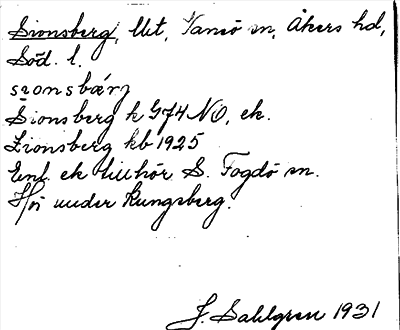 Sionsberg, Utt, Vansö sn, Åkers hd,
Söd. l.
sionsbærj
Sionsberg k G74 NO, ek.
Zionsberg kb 1925
Enl. ek tillhör S. Fogdö sn.
Hör under Kungsberg.
J. Sahlgren 1931